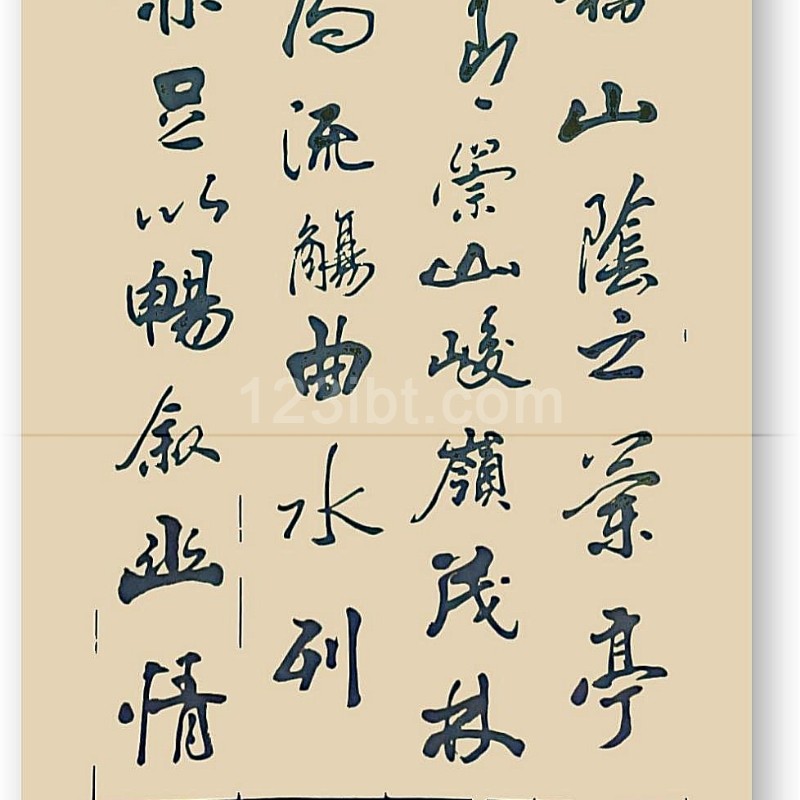 山陰之蘭亭
崇山峻嶺茂林
為流觴曲水列
亦足以暢敘幽情
123ibt.com